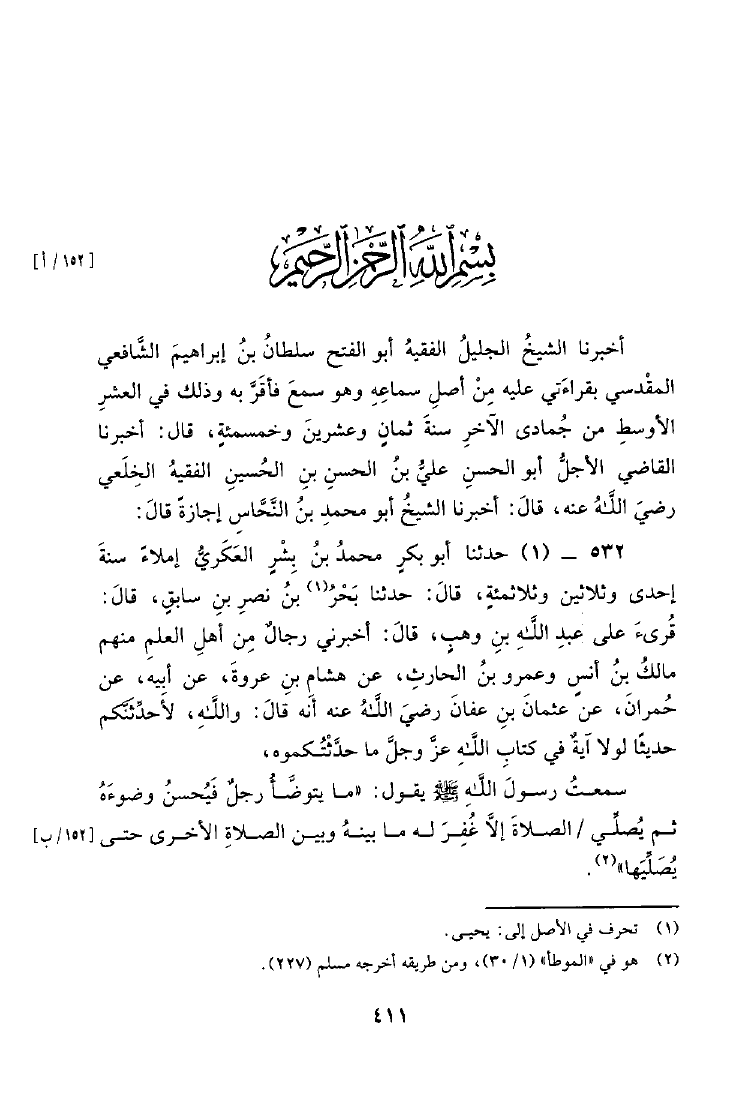 بِسْمِ ٱللَّهِ ٱلرَّحْمَٰنِ ٱلرَّحِيمِ [١٥٢/أ]
أخبرنا الشيخُ الجليلُ الفقيهُ أبو الفتح سلطانُ بنُ إبراهيمَ الشَّافعي
المقْدسي بقراءَتي عليه مِنْ أصلِ سماعِهِ وهو سمعَ فأقرَّ به وذلك في العشرِ
الأوسطِ من جُمادى الآخرِ سنةَ ثمانٍ وعشرينَ وخمسمئةٍ، قال: أخبرنا
القاضي الأجلُّ أبو الحسنِ عليُّ بنُ الحسنِ بنِ الحُسينِ الفقيهُ الخِلَعي
رضيَ اللَّهُ عنه، قالَ: أخبرنا الشيخُ أبو محمدِ بنُ النَّحَّاسِ إجازةً قالَ:
٥٣٢ ـ (١) حدثنا أبو بكرٍ محمدُ بنُ بِشْرٍ العَكَريُّ إملاءً سنةَ
إحدى وثلاثين وثلاثمئةٍ، قالَ: حدثنا بَحْرُ(١) بنُ نصرِ بنِ سابقٍ، قالَ:
قُرىءَ على عبدِ اللَّهِ بنِ وهبٍ، قالَ: أخبرني رجالٌ مِن أهلِ العلمِ منهم
مالكُ بنُ أنسٍ وعمرو بنُ الحارثِ، عن هشامِ بنِ عروةَ، عن أبيه، عن
حُمرانَ، عن عثمانَ بنِ عفانَ رضيَ اللَّهُ عنه أنه قالَ: واللَّهِ، لأحدِّثَنَّكم
حديثًا لولا آيةٌ في كتابِ اللَّهِ عزَّ وجلَّ ما حدَّثْتُكموه،
سمعتُ رسولَ اللَّهِ ﷺ يقول: «ما يتوضَّأُ رجلٌ فَيُحسنُ وضوءَهُ
ثم يُصلِّي / الصلاةَ إلاَّ غُفِرَ له ما بينهُ وبين الصلاةِ الأخرى حتى [١٥٢/ب]
يُصَلِّيَها»(٢).
(١) تحرف في الأصل إلى: يحيى.
(٢) هو في «الموطأ» (١/ ٣٠)، ومن طريقه أخرجه مسلم (٢٢٧).
٤١١